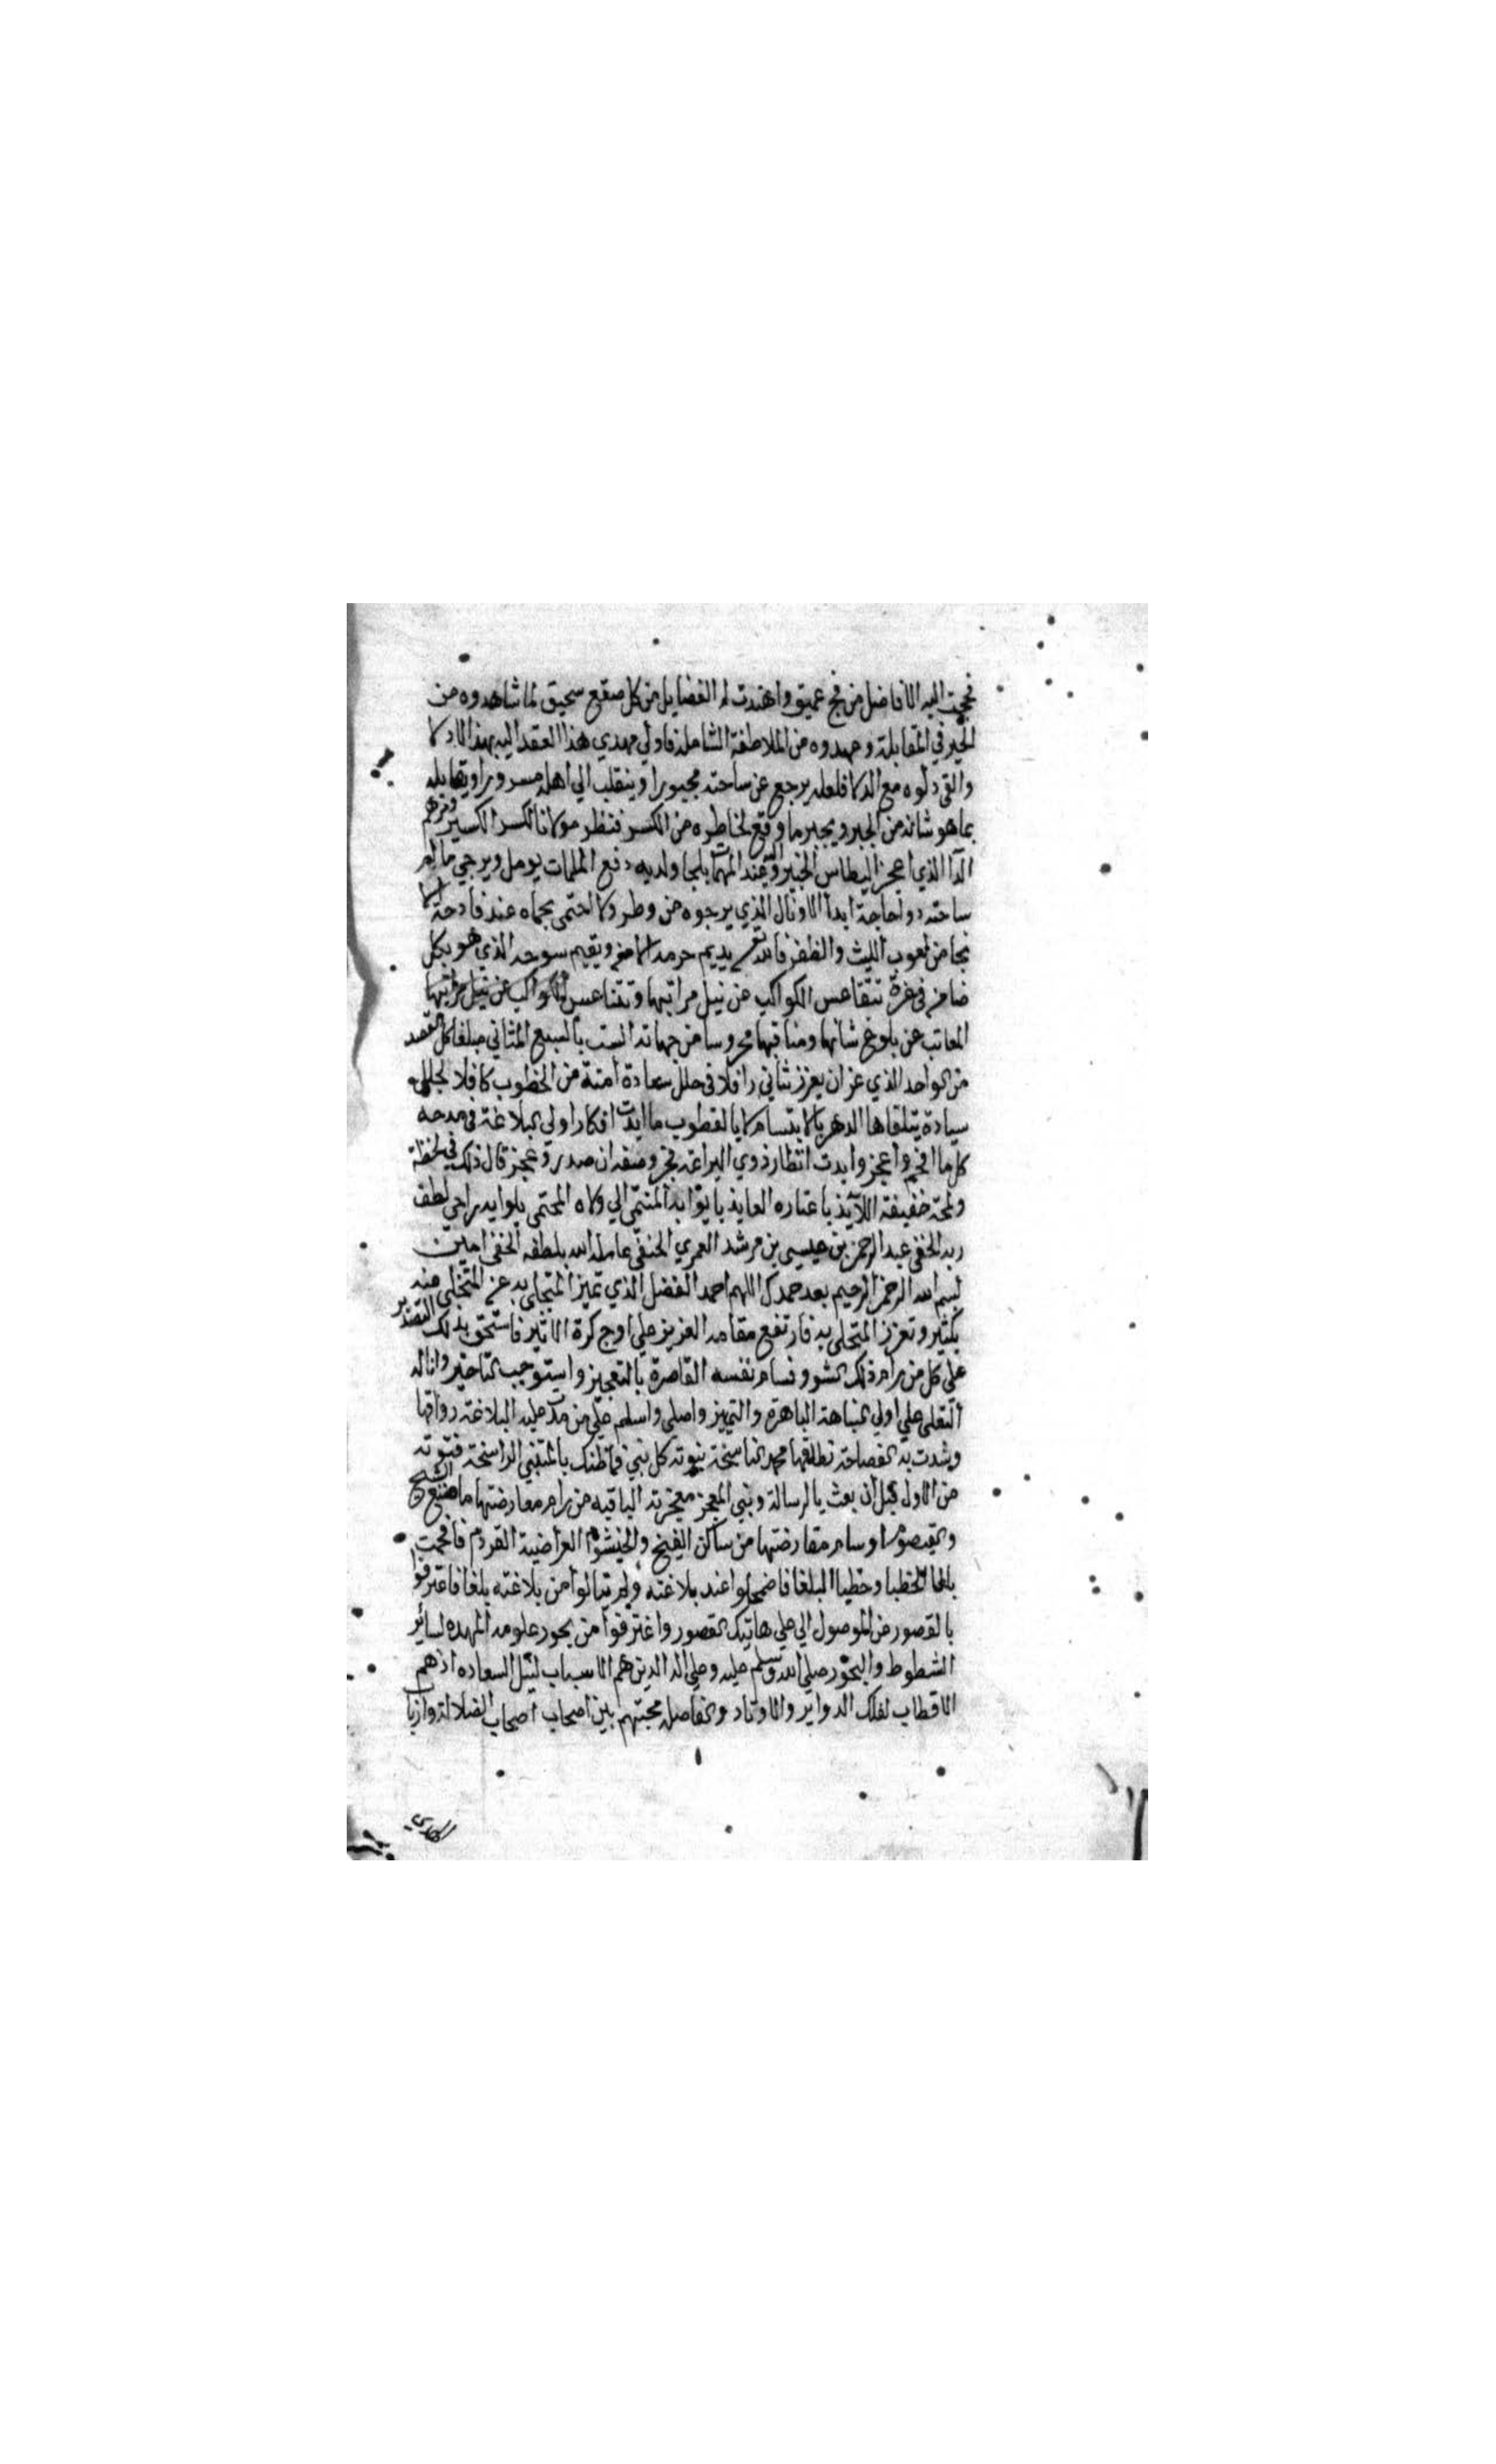 فحجت اليه الافاضل من فج عميق واهتدت له الفضايل من كل صقع سحيق لما شاهدوه من
الخير في المقابلة وعهدوه من الملاطفة الشاملة فاولي مهدي هذا العقد اليه بهذا الادكا
والقي دلوه مع الدلا فلعله يرجع عن ساحته مجبورا وينقلب الي اهله مسرورا ويقابله
بما هو شانه من الجبر ويجبر ما وقع لخاطره من الكسر فنظر مولانا لكسر الكسير
الذي اعجز البطاس الخبير وعند المهمات يلجا ولديه دفع الملمات يومل ويرجي ما ام
ساحته ذو حاجة ابدا الا ونال الذي يرجوه من وطر ولا احتمي بحماه عند فادحة الا
نجا من الليث والظفر فالله يديم حرمه ويقيم سوحه الذي هو بكل
في غرة تتقاعس الكواكب عن نيل مراتبها وتتقاعس عن نيل
عن بلوغ شانها ومناقبها محروسا من جهاته الست بالسبع المثاني مبلغا كل القصد
من الواحد الذي عز ان يعزز بثاني رافلا في حلل سعادة امنة من الخطوب كافلا
سيادة يتلقاها الدهر بالابتسام لا بالقطوب ما ابدت افكار اولي البلاغة في مدحه
كل ما افحم واعجز وابدت انظار ذوي البراعة وصفه ان صدر وعجز قال ذلك في لحظة
ولمحة خفيفة اللايذ باعتابه العايذ بابوابه المنتمي الي ولاه المحتمي بلوايه راجي لطف
ربه الخفي عبد الرحمن بن عيسي بن مرشد العمري الحنفي عامله الله بلطفه الخفي امين
بسم الله الرحمن الرحيم بعد حمدك اللهم احمد الفضل الذي تميز المتحلي به عن المتخلي منه
بكثير وتعزز المتحلي به فارتفع مقامه العزيز علي اوج كرة الاثير فاستحق بذلك التصدير
علي كل من رام ذلك الشو وسام نفسه القاصرة بالتعجيز واستوجب التاخير واناله
التعلي علي اولي النباهة الباهرة والتمييز واصلي واسلم علي من مدت عليه البلاغة رواقها
وشدت به الفصاحة نطاقها محمد الناسخة نبوته كل نبي فما ظنك بالمتنبي الراسخة فتوته
من الاول قبل ان بعث بالرسالة ونبي المعجز معجزته الباقيه من رام معارضتها ما صنع الشيح
والقيصوم او سام مقارضتها من ساكن الفيح
بلغا الخطبا وخطبا البلغا فاضمحلوا عند بلاغته ولم ينالوا من بلاغته بلغا فاعترفوا
بالقصور عن الوصول الي علي هاتيك القصور واغترفوا من بحور علومه المهده لساير
الشطوط والبحور صلي الله وسلم عليه وعلي اله الذين هم الاسباب لنيل السعاده اذ هم
الاقطاب لفلك الدواير والاوتاد والفاصل محبتهم بين اصحاب اصحاب الضلالة وارباب